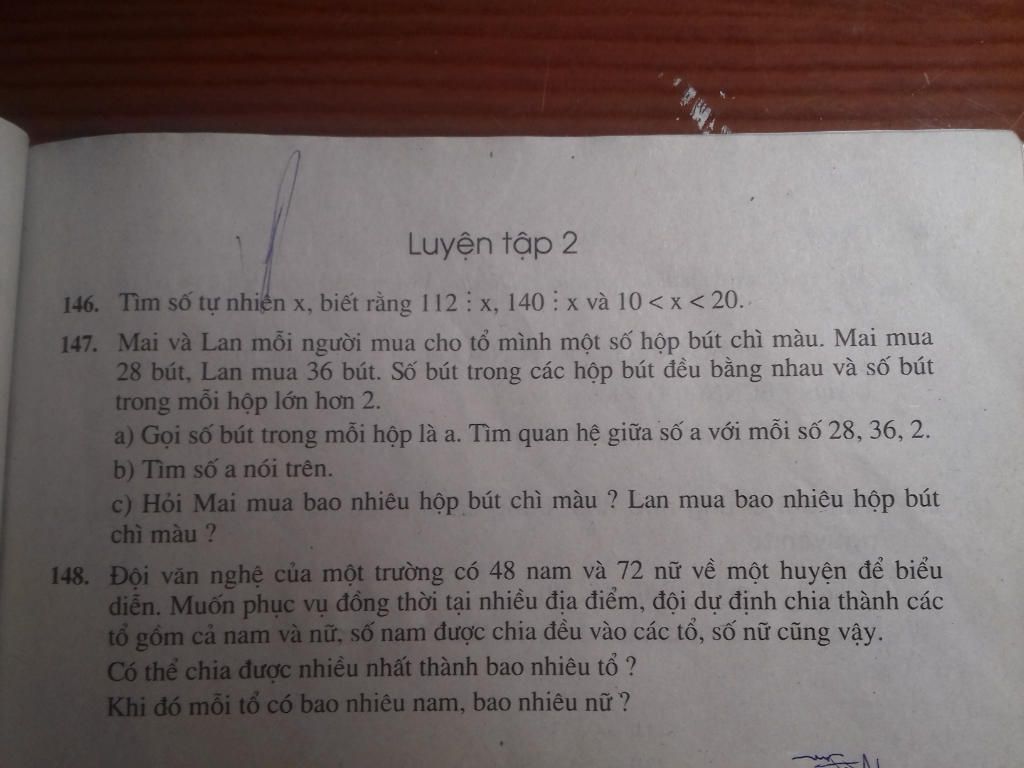 Luyện tập 2
146. Tìm số tự nhiên x, biết rằng 112 ⋮ x, 140 ⋮ x và 10 < x < 20.
147. Mai và Lan mỗi người mua cho tổ mình một số hộp bút chì màu. Mai mua
28 bút, Lan mua 36 bút. Số bút trong các hộp bút đều bằng nhau và số bút
trong mỗi hộp lớn hơn 2.
a) Gọi số bút trong mỗi hộp là a. Tìm quan hệ giữa số a với mỗi số 28, 36, 2.
b) Tìm số a nói trên.
c) Hỏi Mai mua bao nhiêu hộp bút chì màu ? Lan mua bao nhiêu hộp bút
chì màu ?
148. Đội văn nghệ của một trường có 48 nam và 72 nữ về một huyện để biểu
diễn. Muốn phục vụ đồng thời tại nhiều địa điểm, đội dự định chia thành các
tổ gồm cả nam và nữ, số nam được chia đều vào các tổ, số nữ cũng vậy.
Có thể chia được nhiều nhất thành bao nhiêu tổ ?
Khi đó mỗi tổ có bao nhiêu nam, bao nhiêu nữ ?